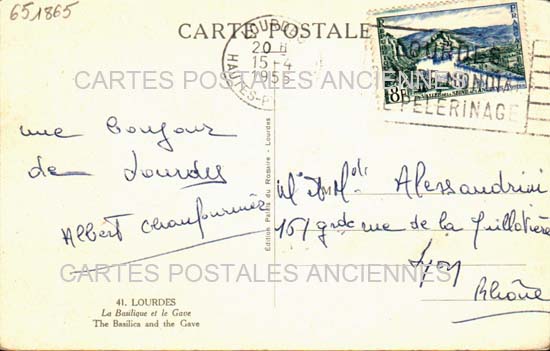 651865
CARTE POSTALE
LOURDES
20 H
15-4
1955
HAUTES-P
8F
LOURDES
MONDIAL
PÈLERINAGE
CARTES POSTALES ANCIENNES
une bonjour
de Lourdes
Albert Chanfourmier
Edition Palais du Rosaire - Lourdes
Mr et Me Alessandrini
151 grde rue de la Guillotière
Lyon
Rhône
CARTES POSTALES ANCIENNES
41. LOURDES
La Basilique et le Gave
The Basilica and the Gave